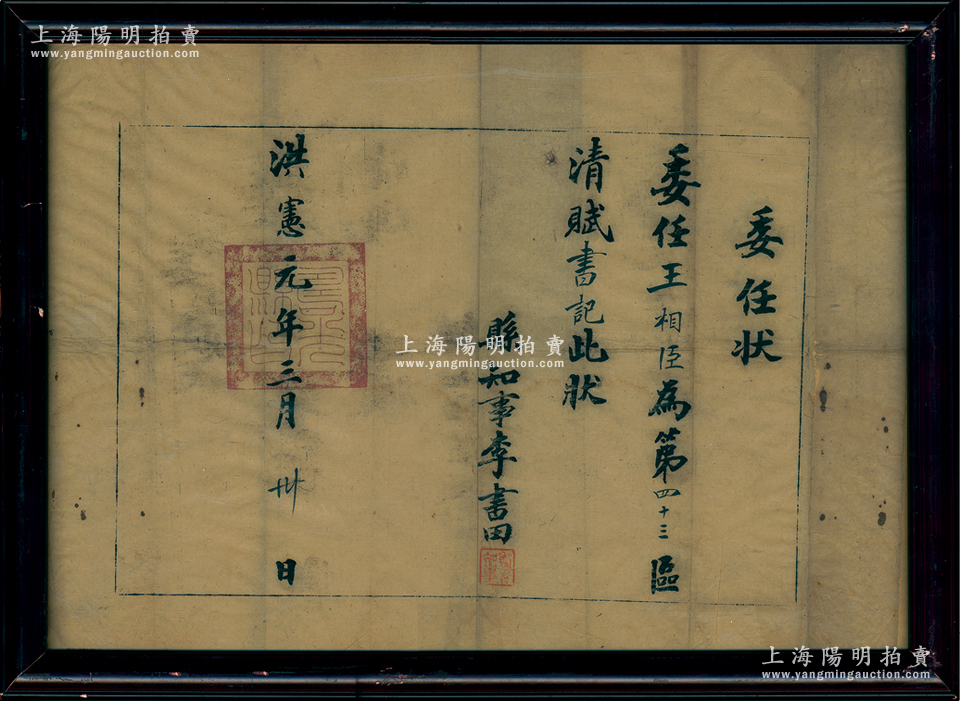 上海陽明拍賣
www.yangmingauction.com
委任状
委任王相臣為第四十三區
清賦書記此狀
縣知事李書田
洪憲元年三月卅日
上海陽明拍賣
www.yangmingauction.com
上海陽明拍賣
www.yangmingauction.com